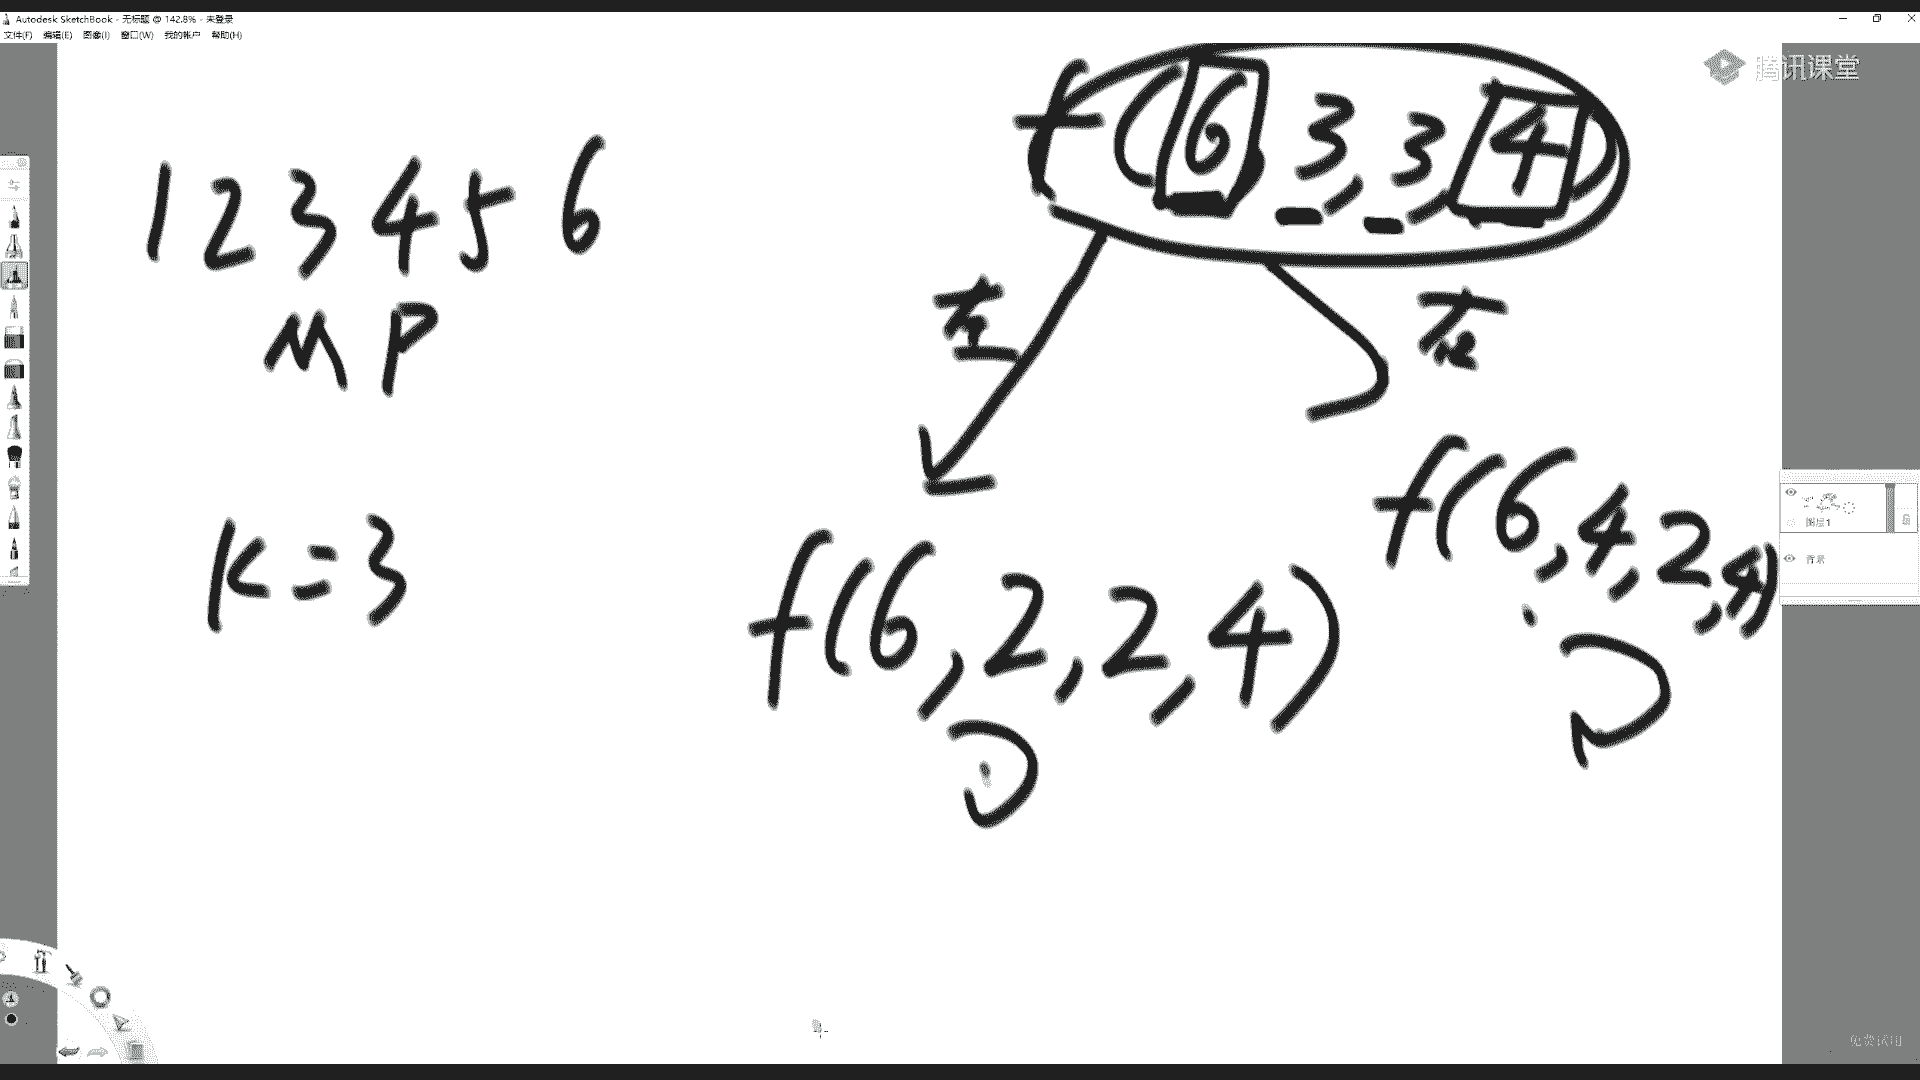 Autodesk SketchBook - 无标题 @ 142.8% - 未登录
文件(F) 编辑(E) 图像(I) 窗口(W) 我的帐户 帮助(H)
腾讯课堂
f(6,3,3,4)
1 2 3 4 5 6
M P
左
右
K=3
f(6,2,2,4)
f(6,4,2,4)
图层1
背景
免费试用